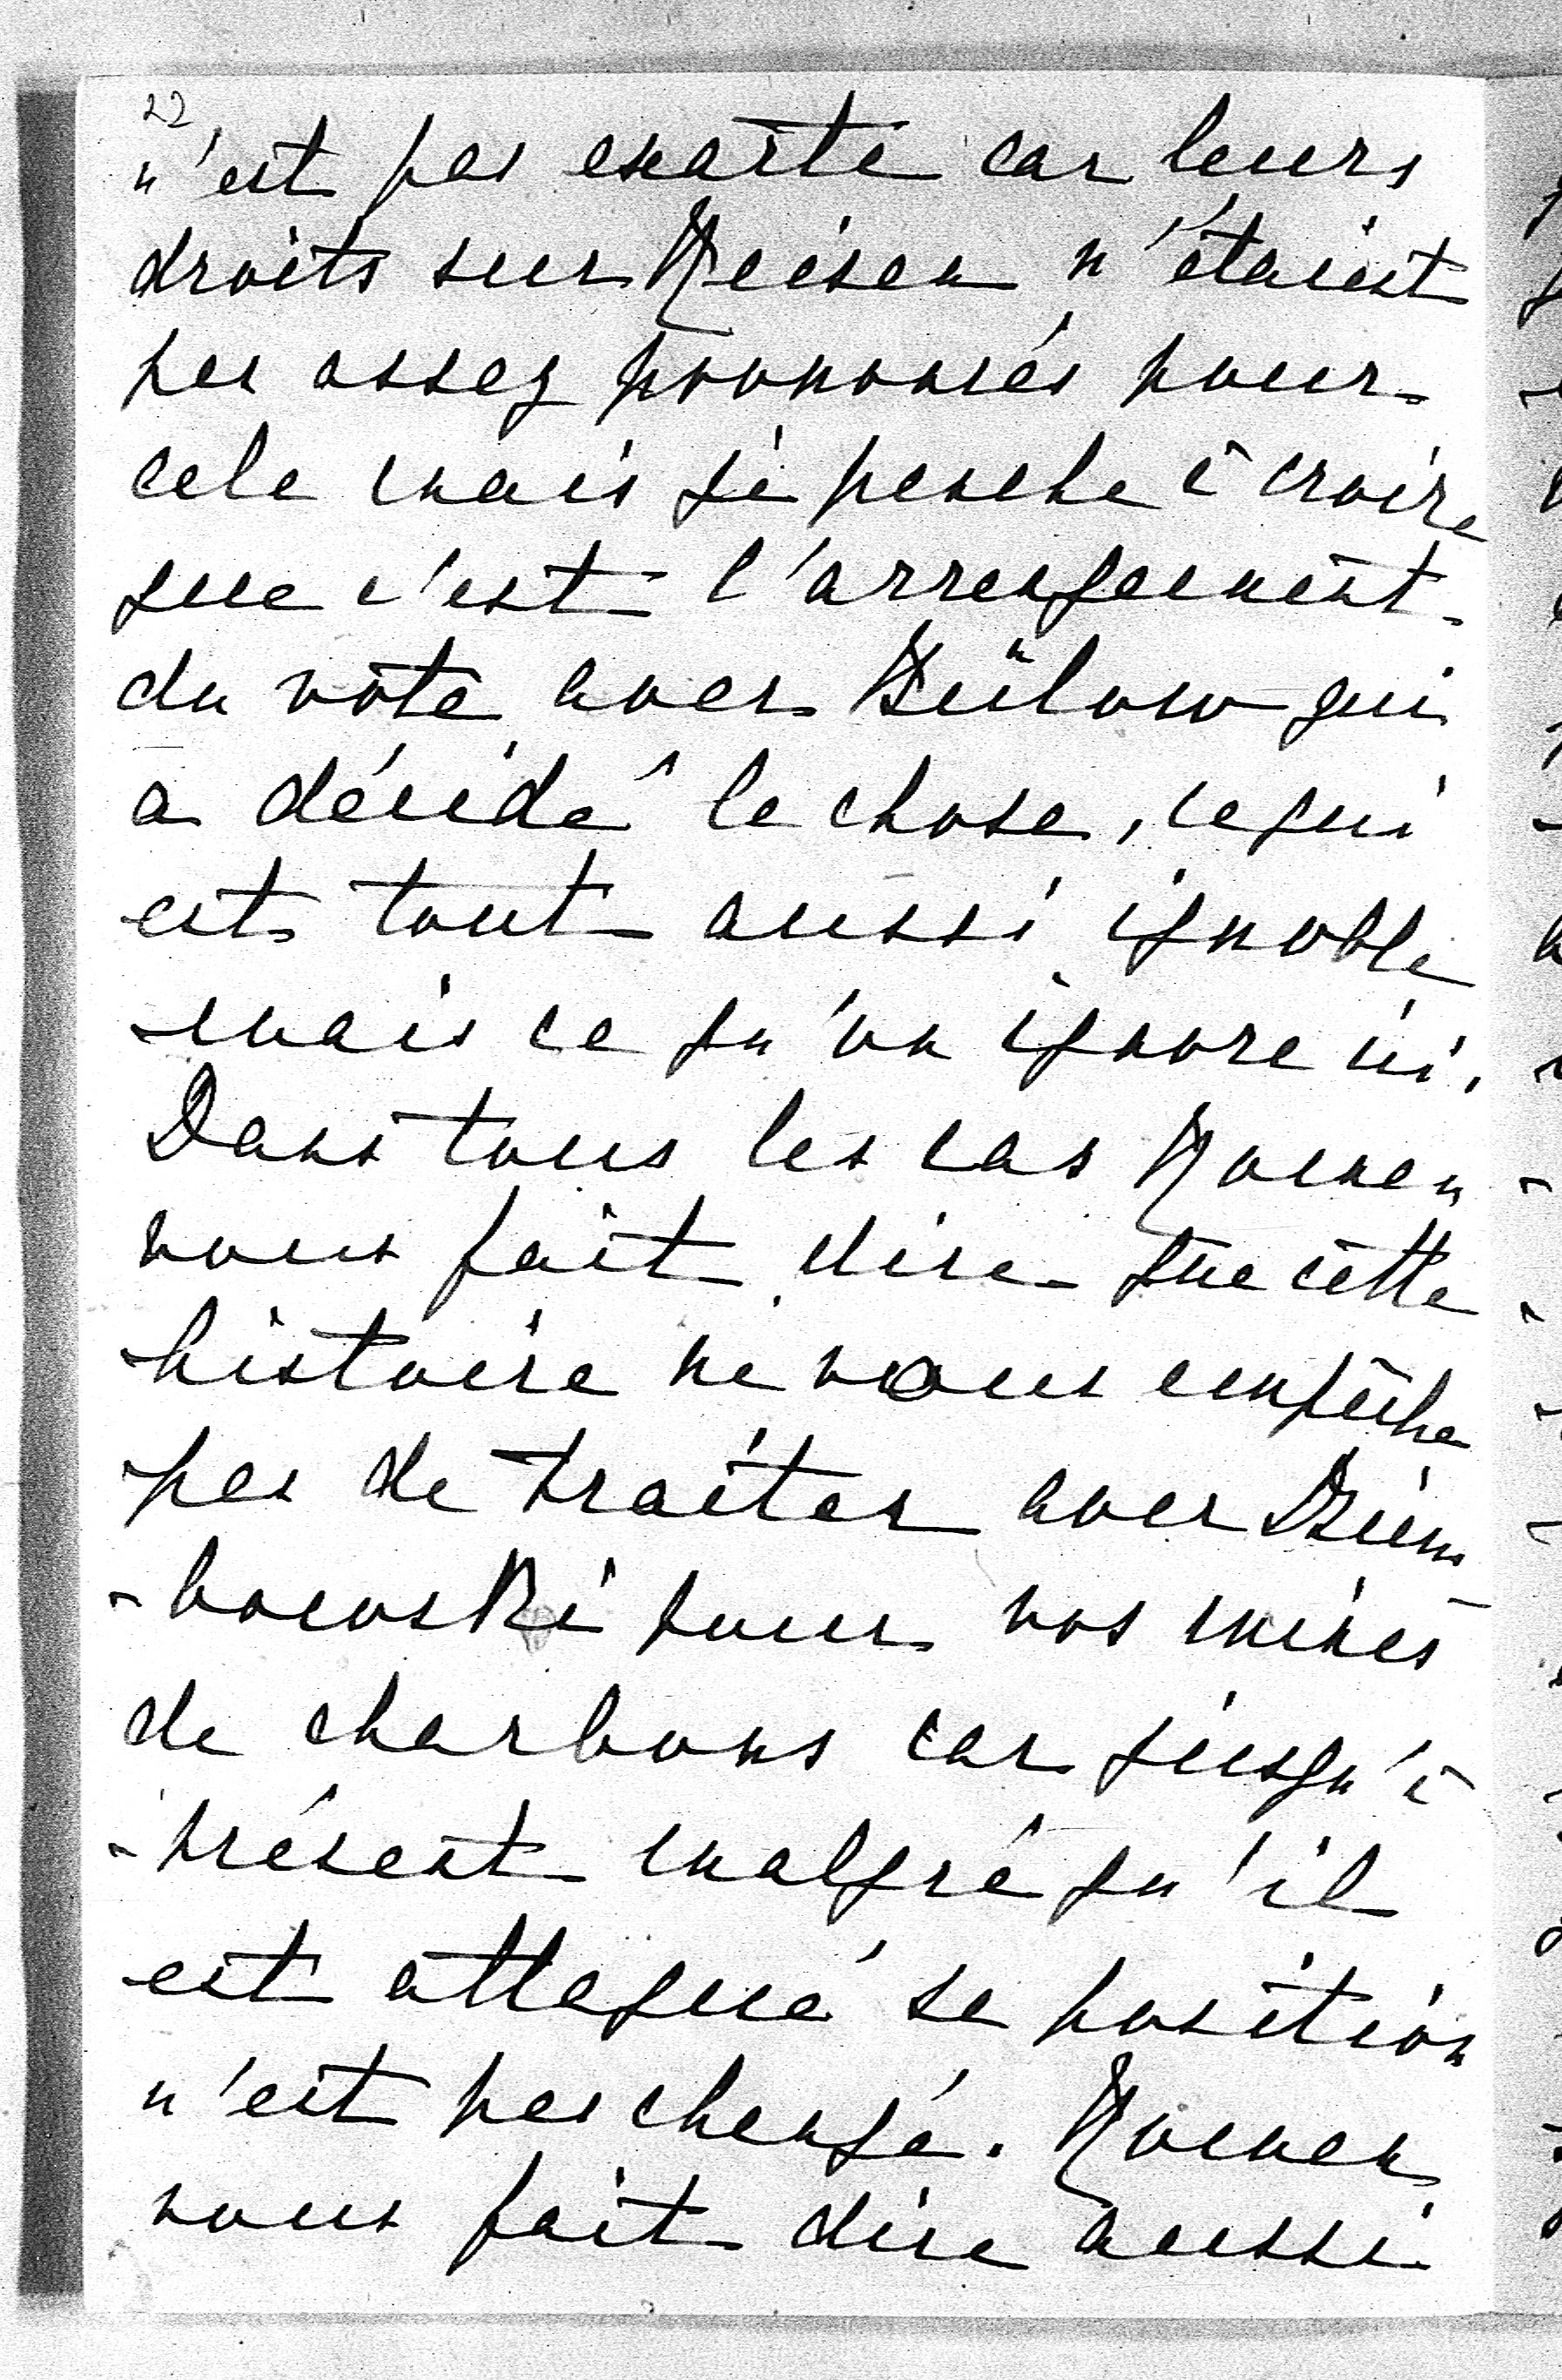 22
n'est pas exacte car leurs
droits sur Reisen n'étaient
pas assez prononcés pour
cela mais je penche à croire
que c'est l'arrangement
du vote avec Bülow qui
a décidé la chose, ce qui
est tout aussi ignoble
mais ce qu'on ignore ici.
Dans tous les cas Roman
vous fait dire que cette
histoire ne vous empêche
pas de traiter avec Dziem
-bowski pour vos mines
de charbons car jusqu'à
présent malgré qu'il
est attaqué sa position
n'est pas changé. Roman
vous fait dire aussi